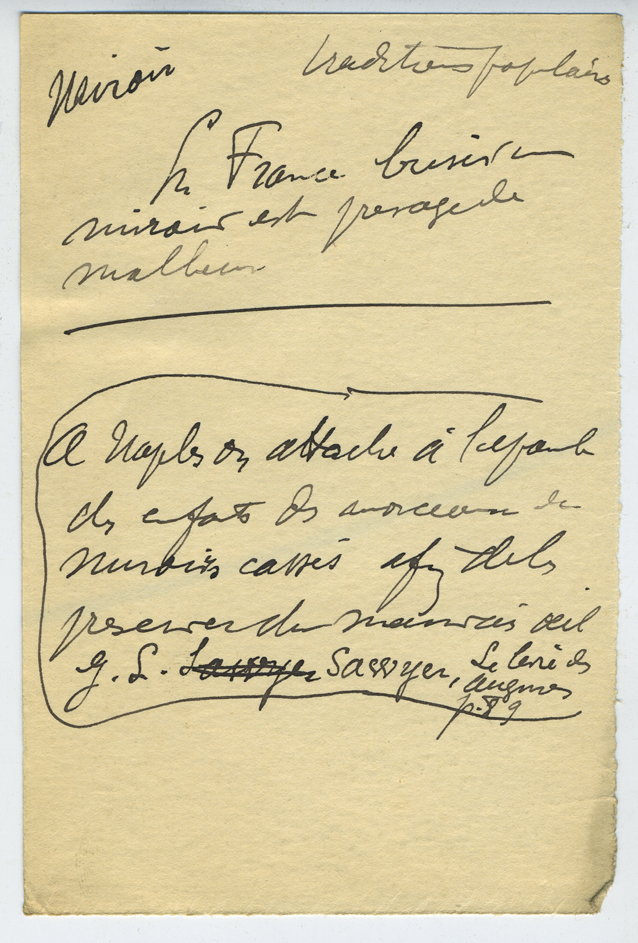 Miroir traditions populaires
En France briser un
miroir est presage de
malheur
A Naples on attache à l'epaule
des enfants des morceaux de
miroirs cassés afin de les
preserver du mauvais œil
G. L. Sawyer Sawyer, Le livre des
augures
p. 89